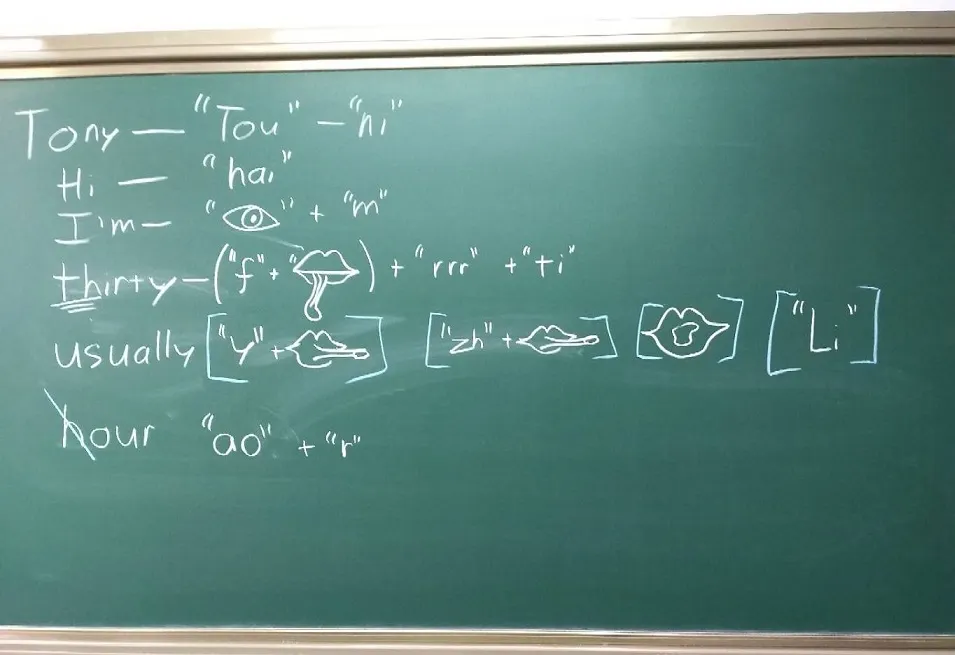 Tony — "Tou" - "ni"
Hi — "hai"
I'm - " " + "m"
thirty - ("f" + " ") + "rrr" + "ti"
usually ["y" + ] ["zh" + ] [ ] ["Li"]
hour "ao" + "r"